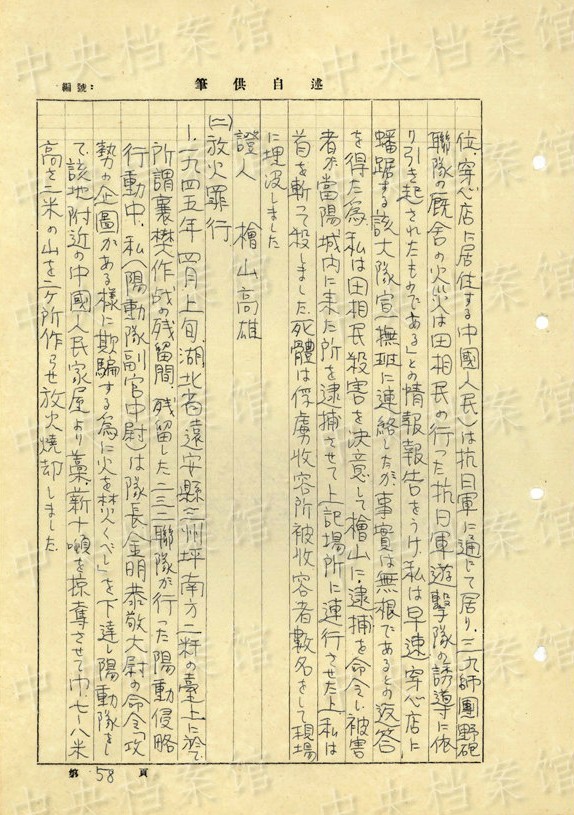 編號：
述自供筆
位、穿心店に居住する中國人民）は抗日軍に通じて居り、三九師團野砲
聯隊の厩舎の火災は田相民の行った抗日軍遊撃隊の誘導に依
り引き起されたものである」との情報報告をうけ、私は早速、穿心店に
蟠踞する該大隊宣撫班に連絡したが、事實は無根であるとの返答
を得た為、私は田相民殺害を決意して檜山に、逮捕を命令し、被害
者が當陽城内に来た所を逮捕させて上記場所に連行させた上、私は
首を斬って殺しました。死體は俘虜收容所被收容者數名をして現場
に埋没しました
證人　檜山高雄
(二)放火罪行
1. 一九四五年四月上旬、湖北省遠安縣三州坪南方二粁の臺上に於て
所謂襄樊作战の残留間、残留した二三二聯隊が行った陽動侵略
行動中、私（陽動隊副官中尉）は隊長金明恭敬大尉の命令「攻
勢の企圖がある様に欺騙する為に火を焚くべし」を下達し陽動隊をし
て、該地附近の中國人民家屋より藁、薪十噸を掠奪させて巾、七－八米
高さ二米の山を二ヶ所作らせ放火焼却しました
第 58 頁
中央档案馆